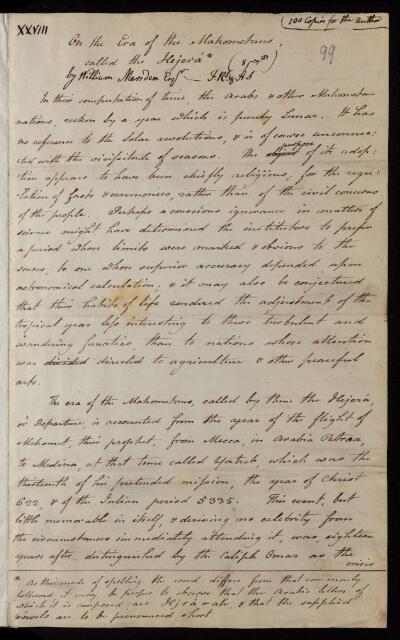 XXVIII
(100 Copies for the Author
99
On the Era of the Mahometans,
called the Hejerà*
by William Marsden Esqr. — F.R.S. & A.S
In their computation of time, the Arabs & other Mahometan
nations, reckon by a year which is purely Lunar. It has
no reference to the Solar revolutions, & is of course unconnec:
:ted with the vicissitude of seasons. The object purpose of its adop:
:tion appears to have been chiefly religious, for the regu:
:lation of fasts & ceremonies, rather than of the civil concerns
of the people. Perhaps a conscious ignorance in matters of
science might have determined the institutors to prefer
a period whose limits were marked & obvious to the
senses, to one whose superior accuracy depended upon
astronomical calculation; & it may also be conjectured
that their habits of life rendered the adjustment of the
tropical year less interesting to these turbulent and
wandering fanatics, than to nations whose attention
was divided directed to agriculture & other peaceful
arts.
The era of the Mahometans, called by them the Hejerà,
or Departure, is accounted from the year of the flight of
Mahomet, their prophet, from Mecca, in Arabia Petræa,
to Medina, at that time called Yatreb which was the
thirteenth of his pretended mission, the year of Christ
622, & of the Julian period 5335. This event, but
little memorable in itself, & deriving no celebrity from
the circumstances immediately attending it, was, eighteen
years after, distinguished by the Caliph Omar as the
crisis
* As this mode of spelling the word differs from that commonly
followed it may be proper to observe that the Arabic letters of
which it is composed, are Hejrawah, & that the supplied
vowels are to be pronounced short.